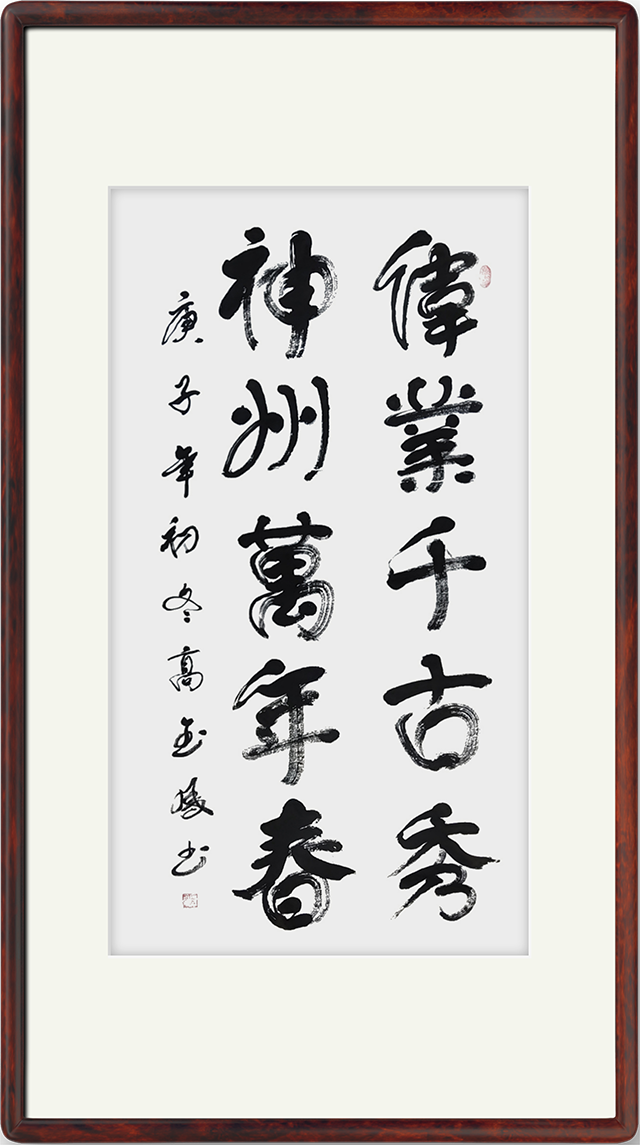 偉業千古秀
神州萬年春
庚子年初冬高金岭书